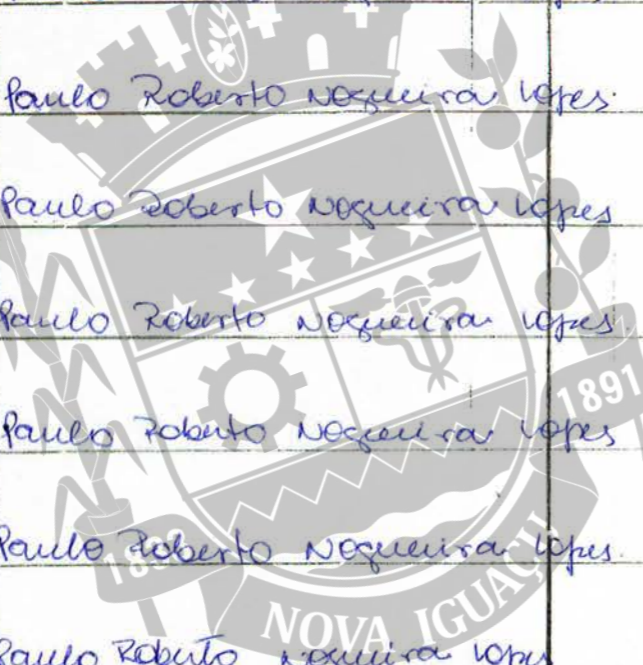 Paulo Roberto Nogueira Lopes.
Paulo Roberto Nogueira Lopes
Paulo Roberto Nogueira Lopes.
1891
Paulo Roberto Nogueira Lopes
Paulo Roberto Nogueira Lopes.
NOVA IGUAÇU
Paulo Roberto Nogueira Lopes